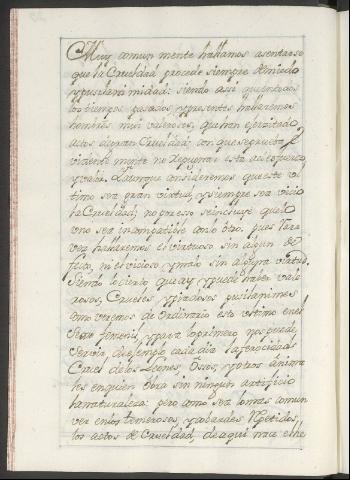 Muy comun mente hallamos asentado
que la Crueldad procede siempre de miedo
y pusilanimidad: siendo assi que en todos
los tiempos pasados, y presentes hallaremos
hombres mui valerosos, que han exercitado
actos de gran Crueldad; con que se prueba
viciente mente no repugnar esta a el esfuerzo
y valor. Y aunque consideremos que este ul
timo sea gran virtud, y siempre sea vicio
la Crueldad; no por esso se incluye que lo
uno sea incompatible con lo otro. pues rara
vez hallaremos el virtuoso sin algun de
fecto, ni el vicioso y malo sin alguna virtud.
Siendo lo cierto que ay, y puede haber vale
rosos, Crueles y piadosos pusilanimes
como veremos de Ordinario esto ultimo en el
Sexo femenil, y para lo primero nos puede
servir de exemplo cada dia la ferocidad
Cruel de los Leones, Ossos, y otros anima
les en quien Obra sin ningun artificio
la naturaleza: pero como sea lo mas comun
ver en los temerosos, y cobardes repetidos
los actos de Crueldad, de aqui nace el he